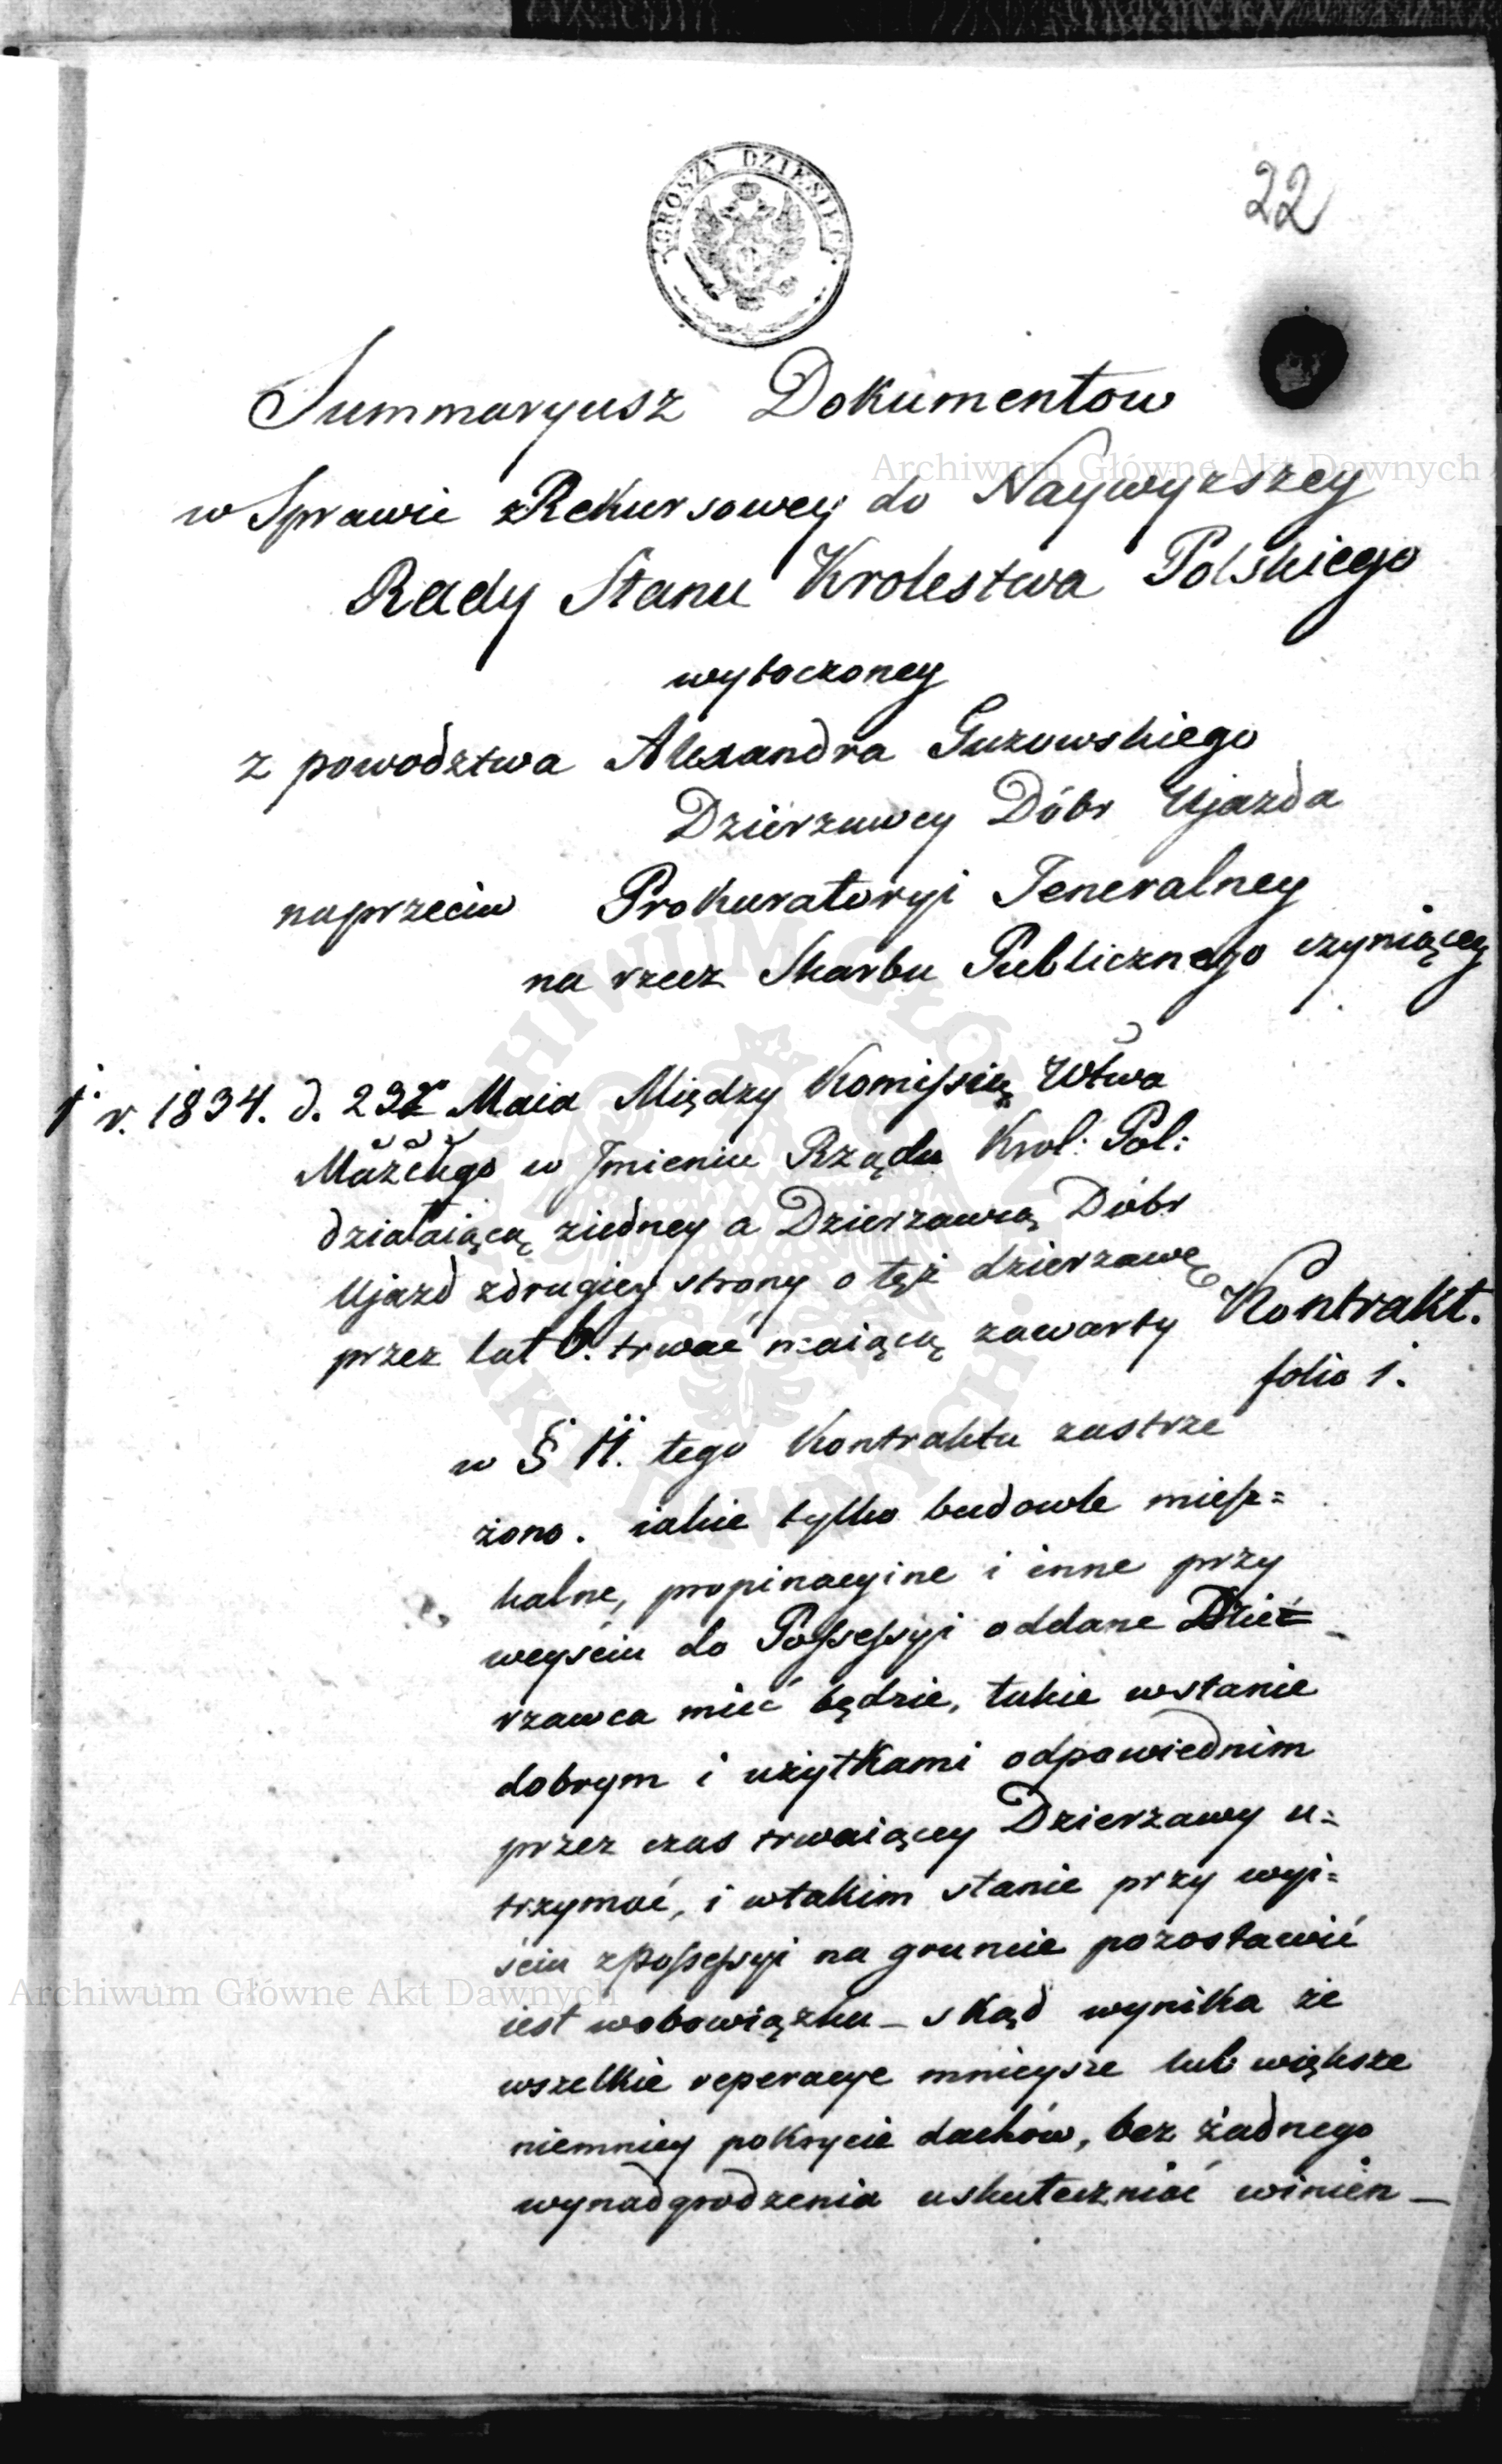 GROSZY DZIESIĘĆ
22
Summaryusz Dokumentow
w Sprawie zRekursowey do Naywyzszey
Rady Stanu Krolestwa Polskiego
wytoczoney
z powodztwa Alexandra Guzowskiego
Dzierzawcy Dóbr Ujazda
naprzeciw Prokuratoryi Jeneralney
na rzecz Skarbu Publicznego czyniącey
1 r. 1834. d. Maia Między Komissią Wtwa
Mazckgo w Jmieniu Rządu Krol: Pol:
działaiącą ziedney a Dzierzawcą Dóbr
Ujazd zdrugiey strony o tęż dzierzawę
przez lat 6. trwać maiącą zawarty Kontrakt.
folio 1.
w § 11. tego Kontraktu zastrze
żono. iakie tylko budowle miesz=
kalne, propinacyine i inne przy
weyściu do Possessyi oddane Dzier
rzawca mieć będzie, takie wstanie
dobrym i użytkami odpowiednim
przez czas trwaiącey Dzierzawy u=
trzymać, i wtakim stanie przy wyi=
ściu zPossessyi na gruncie pozostawić
iest wobowiązku_ skąd wynika że
wszelkie reperacye mnieysze lub większe
niemniey pokrycie dachów, bez żadnego
wynadgrodzenia uskuteczniać winien_
Archiwum Główne Akt Dawnych
Archiwum Główne Akt Dawnych
ARCHIWUM GŁÓWNE AKT DAWNYCH